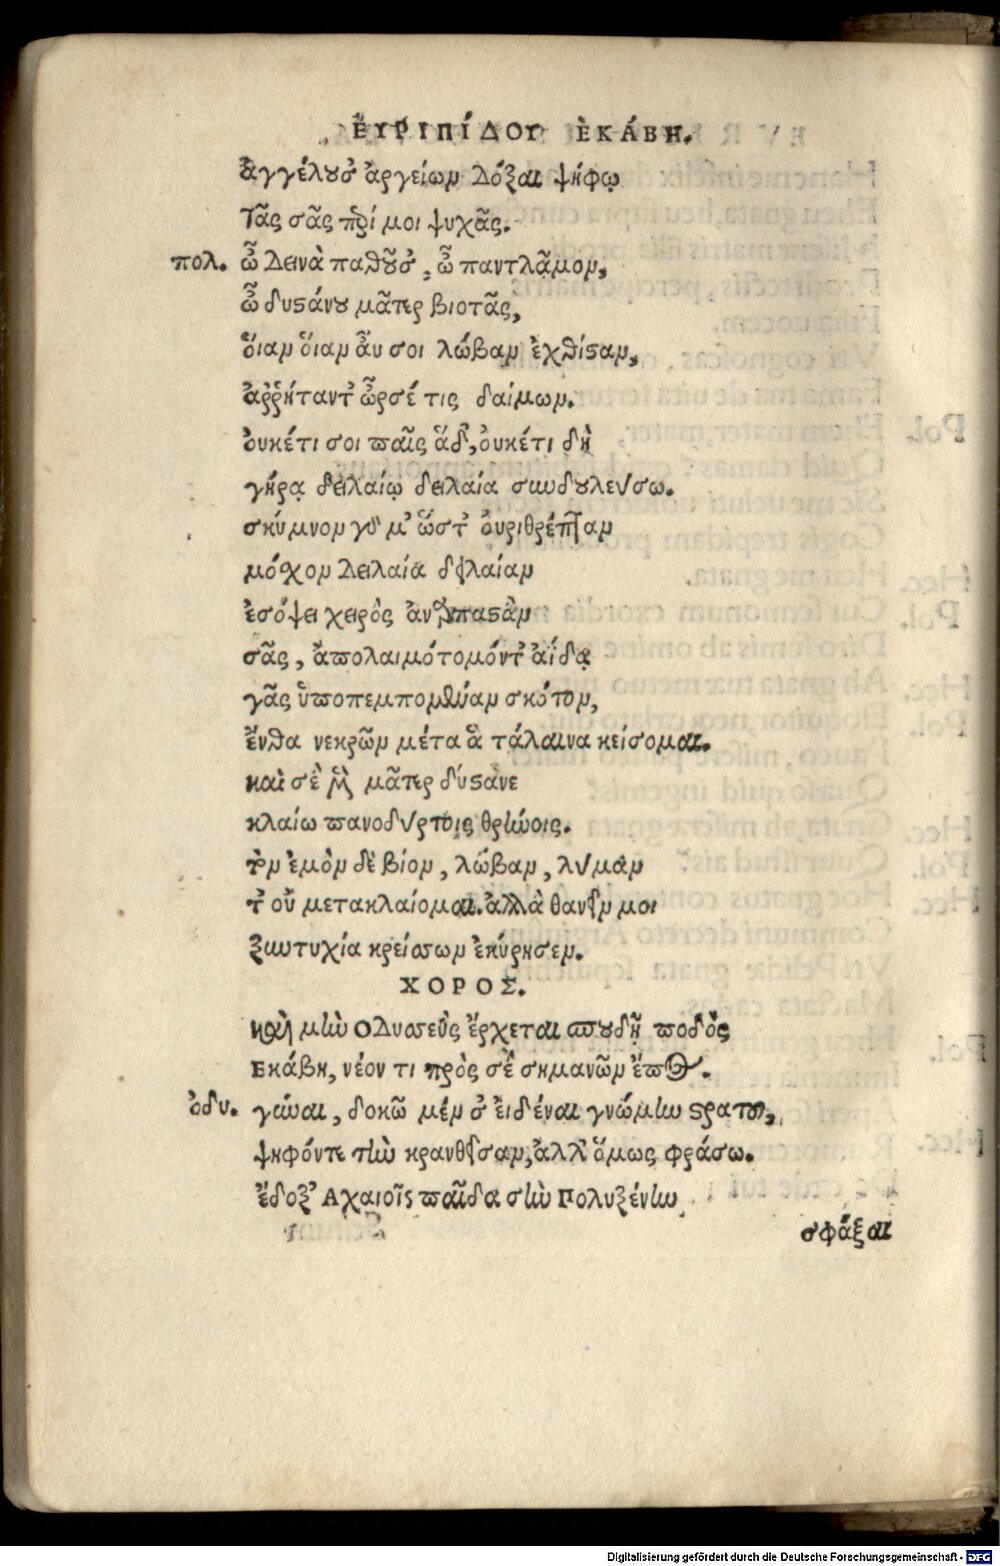 ἘΥΡΙΠΊΔΟΥ ἘΚΆΒΗ.
ἀγγέλουσ' ἀργείων δόξαι ψήφῳ
Τᾶς σᾶς περί μοι ψυχᾶς.
πολ. ὦ δεινὰ παθοῦσ', ὦ παντλᾶμον,
ὦ δυστάνου μᾶτερ βιοτᾶς,
ὅιαν ὅιαν ἂυ σοι λώβαν ἐχθίσταν,
ἀῤῥήταντ' ὦρσέ τις δαίμων.
ὀυκέτι σοι παῖς ἅδ', ὀυκέτι δὴ
γήρᾳ δειλαίῳ δειλαία συνδουλεύσω.
σκύμνον γάρ μ' ὥστ' ὀυριθρέπταν
μόσχον δειλαία δειλαίαν
ἐσόψει χειρὸς ἀναρπαστὰν
σᾶς, ἀπολαιμότομόντ' ἀίδᾳ
γᾶς ὑποπεμπομέναν σκότον,
ἔνθα νεκρῶν μέτα ἁ τάλαινα κείσομαι.
καὶ σὲ μὲν μᾶτερ δύστανε
κλαίω πανοδύρτοις θρήνοις.
τὸν ἐμὸν δὲ βίον, λώβαν, λύμαν
τ' οὐ μετακλαίομαι. ἀλλὰ θανεῖν μοι
ξυντυχία κρείσσων ἐκύρησεν.
ΧΟΡΟΣ.
καὶ μὴν Ὀδυσσεὺς ἔρχεται σπουδῇ ποδὸς
Ἑκάβη, νέον τι πρὸς σὲ σημανῶν ἔπος.
ὀδυ. γύναι, δοκῶ μέν σ' ἐιδέναι γνώμην στρατοῦ,
ψηφόντε τὴν κρανθεῖσαν, ἀλλ' ὅμως φράσω.
ἔδοξ' Ἀχαιοῖς παῖδα σὴν Πολυξένην
σφάξαι
Digitalisierung gefördert durch die Deutsche Forschungsgemeinschaft - DFG